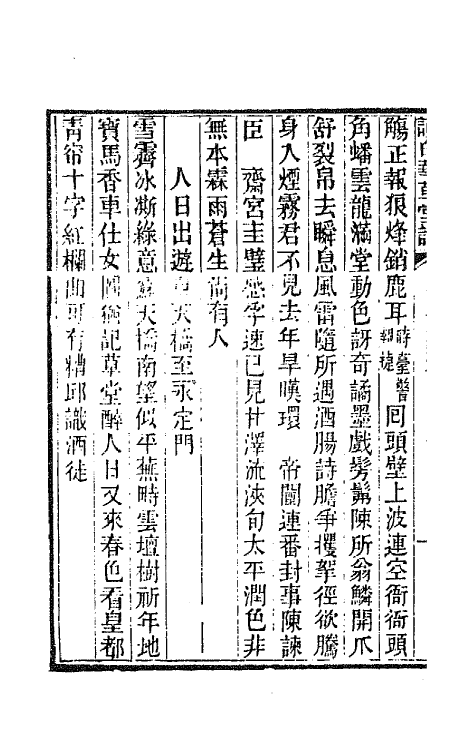 觴正報狼烽銷鹿耳時臺警初捷回頭壁上波連空銜銜頭
角蟠雲龍滿堂動色訝奇譎墨戲髣髴陳所翁鱗開爪
舒裂帛去瞬息風雷隨所遇酒腸詩膽爭攫拏徑欲騰
身入煙霧君不見去年旱嘆環 帝闉連番封事陳諫
臣 齋宮圭璧感孚速已見甘澤流浹旬太平潤色非
無本霖雨蒼生尚有人
人日出遊 天橋至永定門
雪霽冰澌綠意 天橋南望似平蕪時雲壇樹祈年地
寶馬香車仕女圖 記草堂醉人日又來春色看皇都
青帘十字紅欄曲可有糟邱識酒徒